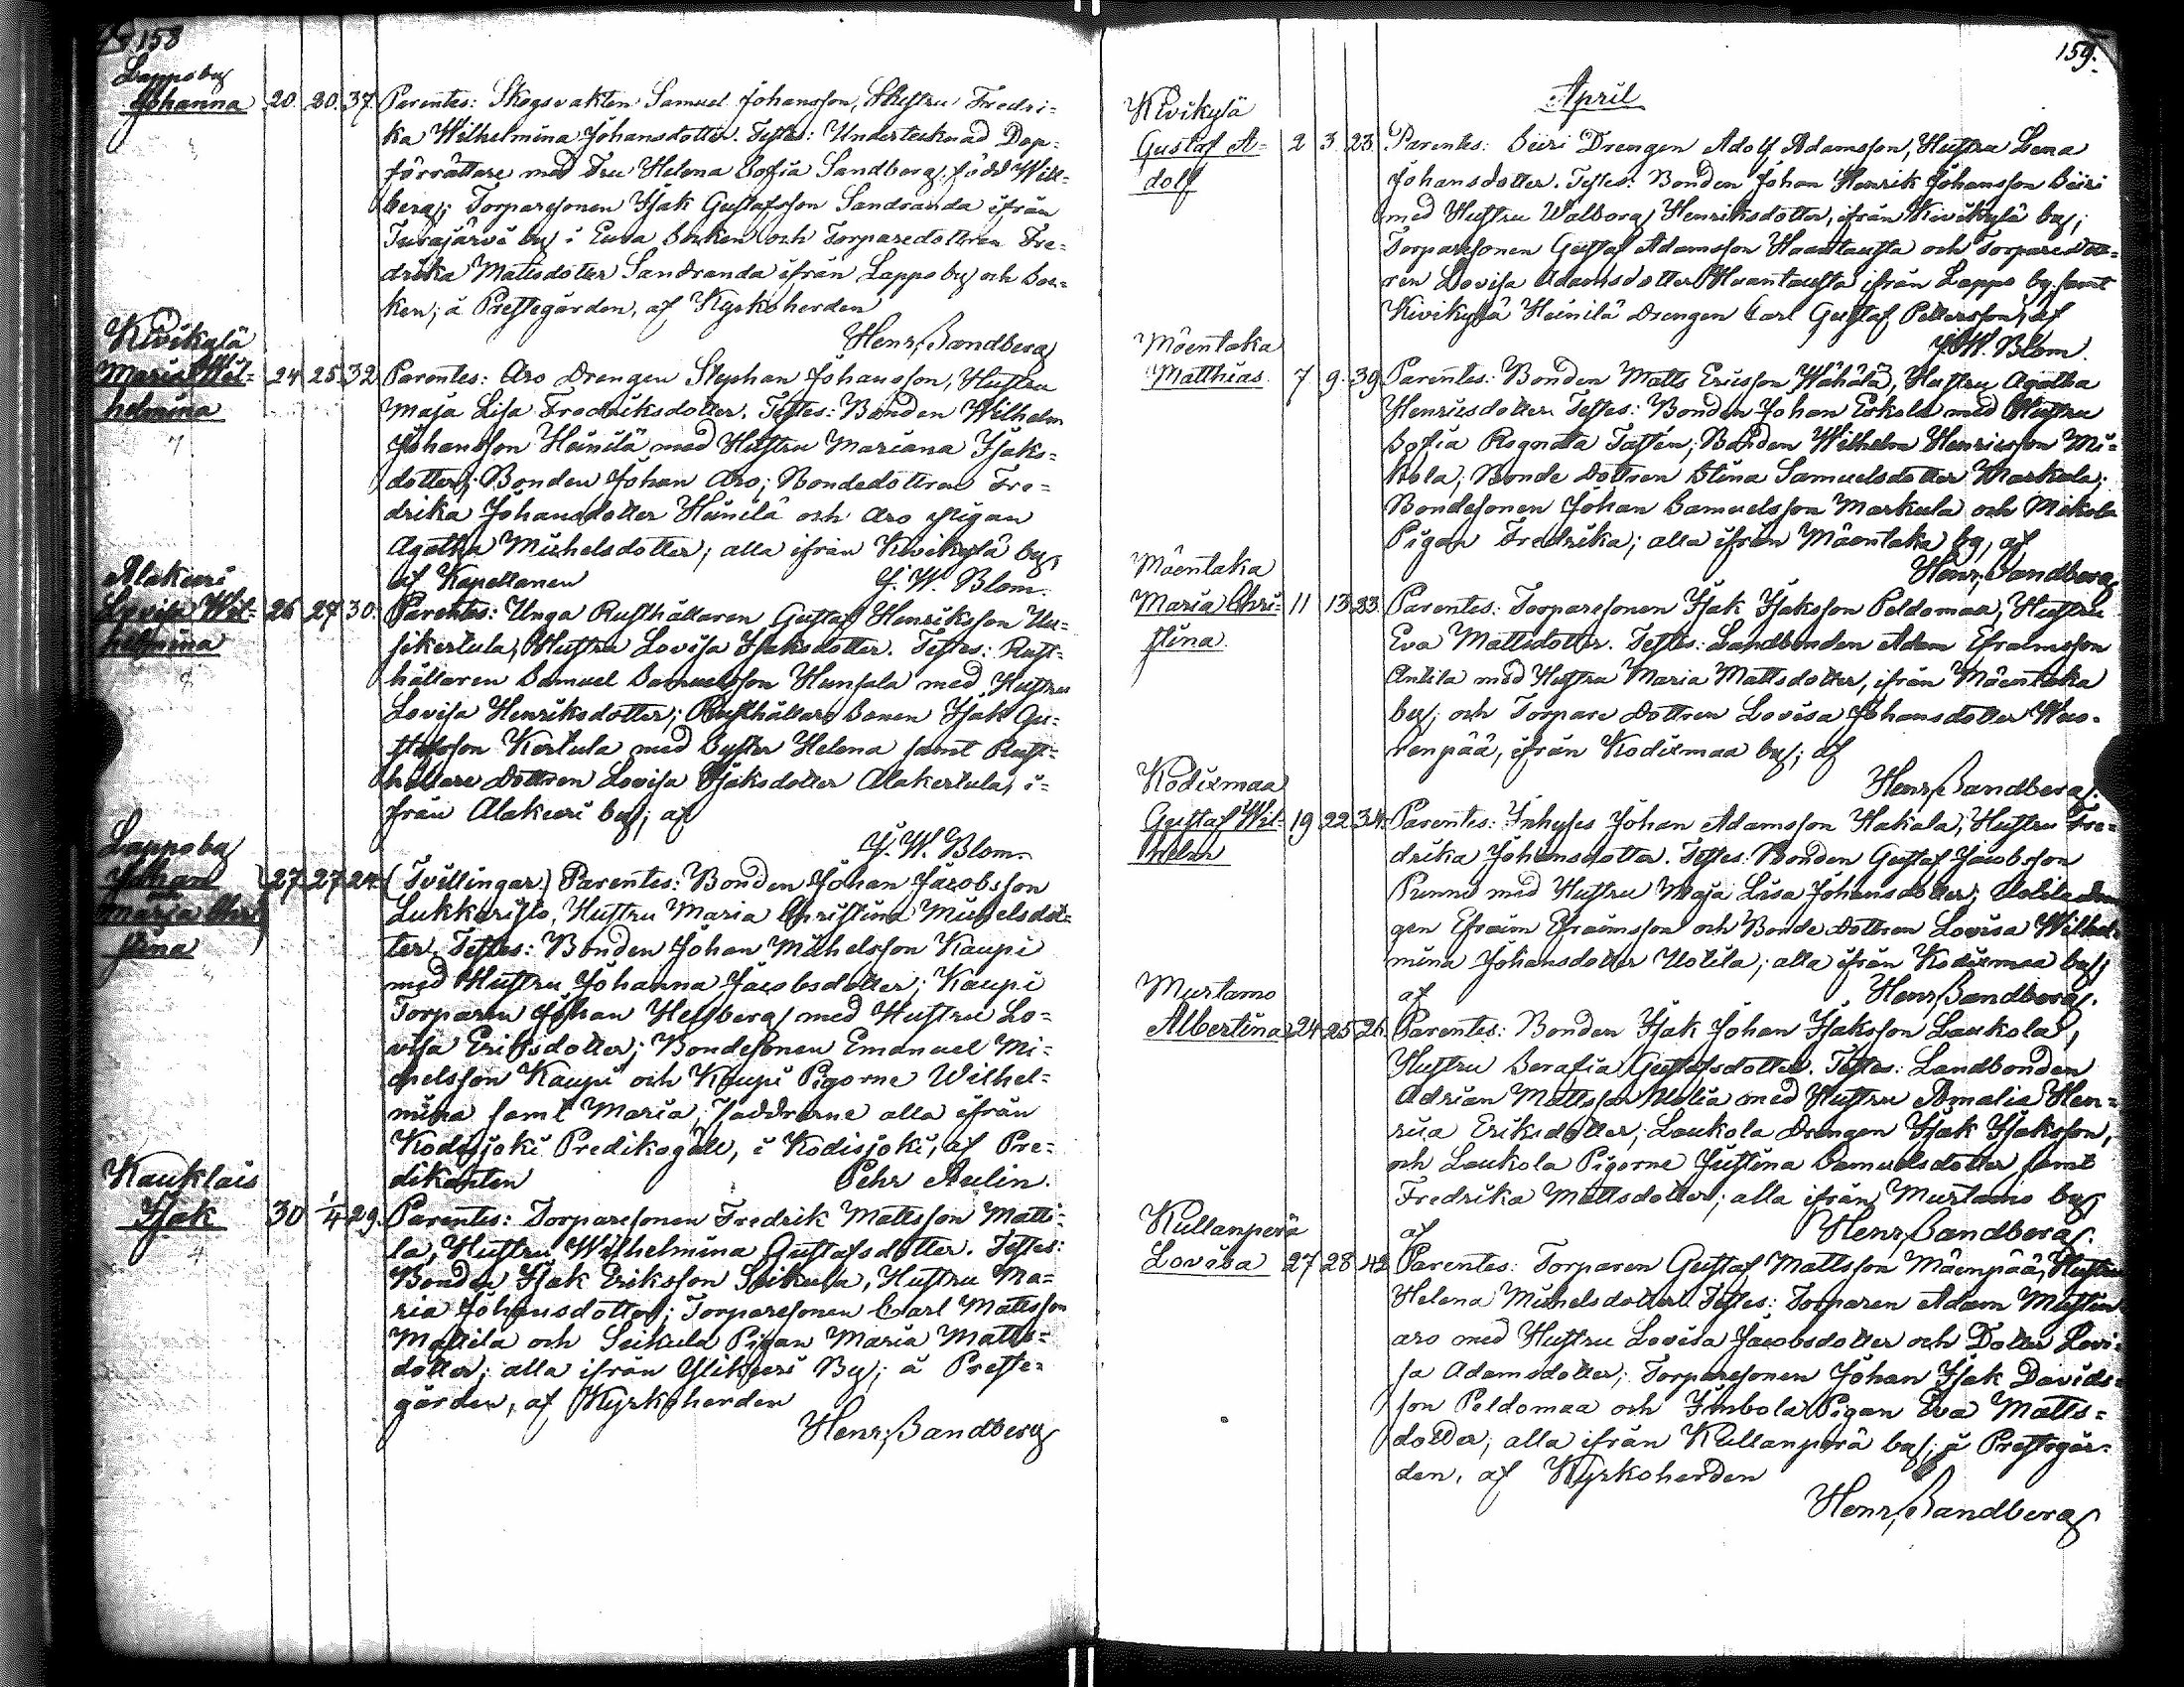 158
Lappo by
Johanna 20. 20. 37. Parentes: Skogsvakten Samuel Johansson, Hustru Fredri-
ka Wilhelmina Johansdotter. Testes: Undertecknad Dop-
förrättare med Fru Helena Sofia Sandberg, född Will-
berg; Torparesonen Isak Gustafsson Sandranda ifrån
Turajärvi by i Eura Socken och Torparedottren Fre-
drika Mattsdotter Sandranda ifrån Lappo by och Soc-
ken; å Prestegården, af Kyrkoherden
Henr. Sandberg
Kivikylä
Maria Wil- 24 25 32 Parentes: Aro Drengen Stephan Johansson, Hustru
helmina Maja Lisa Fredriksdotter. Testes: Bonden Wilhelm
Johansson Heinilä med Hustru Mariana Isaks-
dotter; Bonden Johan Aro; Bondedottren Fre-
drika Johansdotter Heinilä och Aro Pigan
Agatha Michelsdotter; alla ifrån Kivikylä by,
af Kapellanen J. W. Blom.
Alakuri
Lovisa Wil- 26 27 30. Parentes: Unga Rusthållaren Gustaf Henriksson Uu-
helmina sikertula, Hustru Lovisa Isaksdotter. Testes: Rust-
hållaren Samuel Samuelsson Hunsala med Hustru
Lovisa Henriksdotter; Rusthållare Sonen Isak Gu-
stafsson Kertula med Syster Helena samt Rust-
hållare Dottren Lovisa Isaksdotter Alakertula, i-
från Alakuri by; af
J. W. Blom.
Lappo by
Johan 27. 27. 24. (Tvillingar) Parentes: Bonden Johan Jacobsson
Maria Chri- Lukkaristo, Hustru Maria Christina Michelsdot-
stina ter. Testes: Bonden Johan Michelsson Kaupi
med Hustru Johanna Jacobsdotter; Kaupi
Torparen Johan Hellberg med Hustru Lo-
visa Eriksdotter; Bondesonen Emanuel Mi-
chelsson Kaupi och Kaupi Pigorne Wilhel-
mina samt Maria; faddrarne alla ifrån
Kodisjoki Predikogäll, i Kodisjoki, af Pre-
dikanten Pehr Aulin.
Kauklais
Isak 30 1/4 29. Parentes: Torparesonen Fredrik Mattsson Matti-
la, Hustru Wilhelmina Gustafsdotter. Testes:
Bonden Isak Eriksson Seikula, Hustru Ma-
ria Johansdotter; Torparesonen Carl Mattsson
Mattila och Seikula Pigan Maria Matts-
dotter; alla ifrån Ylikieri By; å Preste-
gården, af Kyrkoherden
Henr. Sandberg
159.
April
Kivikylä
Gustaf A- 2 3 23. Parentes: Seiri Drengen Adolf Adamsson, Hustru Lena
dolf Johansdotter. Testes: Bonden Johan Henrik Johansson Seiri
med Hustru Walborg Henriksdotter, ifrån Kivikylä by;
Torparesonen Gustaf Adamsson Haantausta och Torparedott-
ren Lovisa Adamsdotter Haantausta ifrån Lappo by samt
Kivikylä Heinilä Drengen Carl Gustaf Pettersson; af
J. W. Blom.
Mäentaka
Matthias. 7 9. 39. Parentes: Bonden Matts Ericsson Wähälä, Hustru Agatha
Henricsdotter. Testes: Bonden Johan Eskola med Hustru
Sofia Rognata Tallén; Bonden Wilhelm Henricsson Mi-
kola; Bonde Dottren Stina Samuelsdotter Markula;
Bondesonen Johan Samuelsson Markula och Mikola
Pigan Fredrika; alla ifrån Mäentaka by, af
Henr. Sandberg
Mäentaka
Maria Chri- 11 13 23. Parentes: Torparesonen Isak Isaksson Peldomaa, Hustru
stina. Eva Mattsdotter. Testes: Landbonden Adam Efraimsson
Antila med Hustru Maria Mattsdotter, ifrån Mäentaka
by; och Torpare Dottren Lovisa Johansdotter Wuo-
renpää, ifrån Kodixmaa by; af
Henr. Sandberg.
Kodixmaa
Gustaf Wil- 19 22 34. Parentes: Inhyses Johan Adamsson Hakala, Hustru Fre-
helm drika Johansdotter. Testes: Bonden Gustaf Jacobsson
Prunni med Hustru Maja Lisa Johansdotter; Uolila Dren
gen Efraim Efraimsson och Bonde Dottren Lovisa Wilhel-
mina Johansdotter Uotila; alla ifrån Kodixmaa by;
af Henr. Sandberg.
Murtamo
Albertina 24 25 26. Parentes: Bonden Isak Johan Isaksson Laukola,
Hustru Serafia Gustafsdotter. Testes: Landbonden
Adrian Mattsson Uolia med Hustru Amalia Hen-
rica Eriksdotter; Laukola Drengen Isak Isaksson,
och Laukola Pigorne Justina Samuelsdotter samt
Fredrika Mattsdotter; alla ifrån Murtamo by
af Henr. Sandberg.
Kullanperä
Lovisa 27 28 42 Parentes: Torparen Gustaf Mattsson Mäenpää, Hustru
Helena Michelsdotter. Testes: Torparen Adam Mustan
aro med Hustru Lovisa Jacobsdotter och Dotter Lovi-
sa Adamsdotter; Torparesonen Johan Isak Davids-
son Peldomaa och Imbola Pigan Eva Matts-
dotter; alla ifrån Kullanperä by; å Prestegår-
den, af Kyrkoherden
Henr. Sandberg